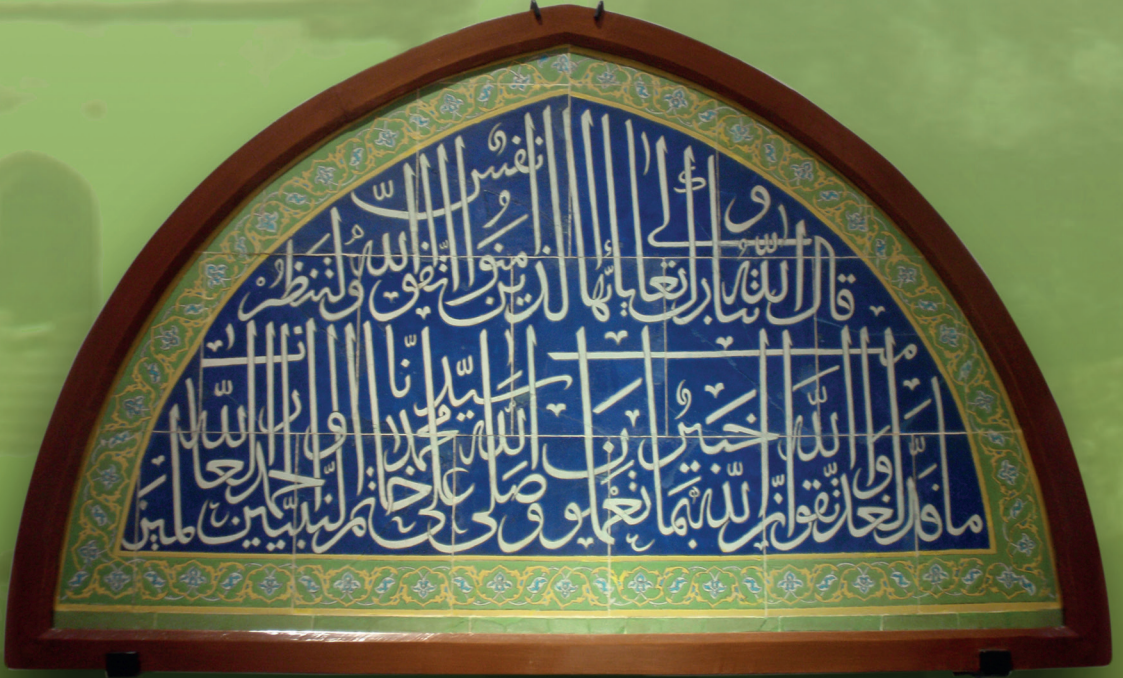 قال الله تبارك وتعالى يأيها الذين امنوا اتقوا الله ولتنظر نفس
ما قدمت لغد واتقوا الله ان الله خبير بما تعملون وصلى الله على سيدنا محمد خاتم النبيين والحمد لله رب العالمين